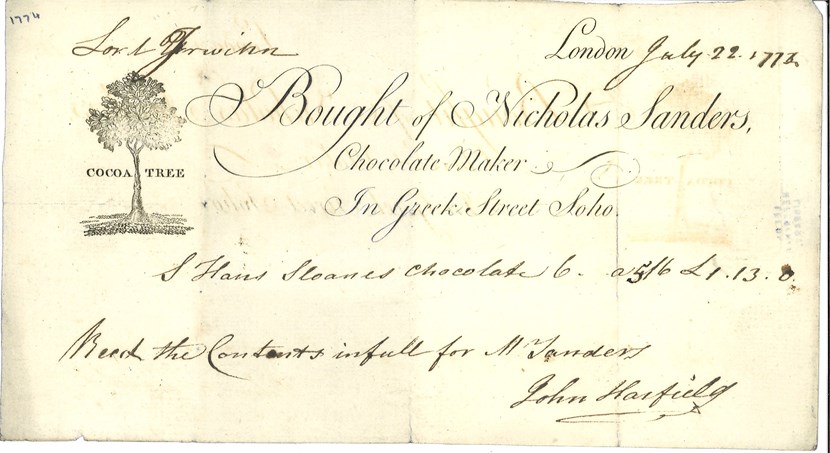 1774
Lord
London July 22. 177
Bought of Nicholas Sanders,
COCOA TREE
Chocolate Maker
In Greek Street Soho.
S Hans Sloanes Chocolate 6. a 5/6 £1.13.0
Recd the Contents in full for Mr Sanders
John Harfield